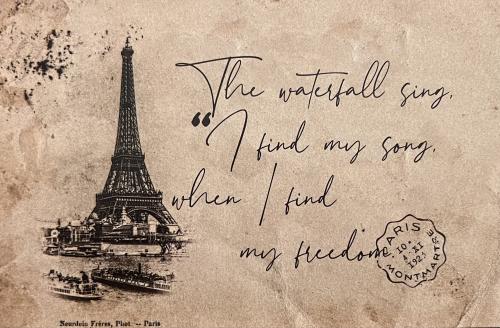 The waterfall sing,
“I find my song,
when I find
my freedom
PARIS
10
XI
192
MONTMARTRE
Neurdein Frères, Phot. — Paris